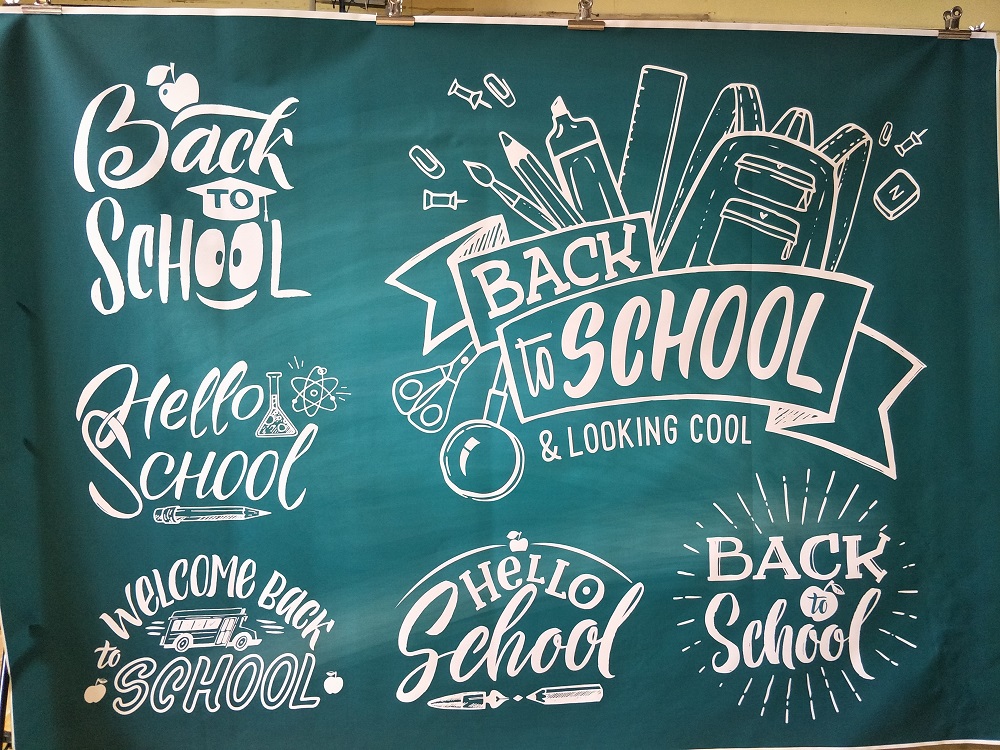 Back
TO
SCHOOL
BACK
to SCHOOL
& LOOKING COOL
N
Hello
SCHOOL
WELCOME BACK
to SCHOOL
HELLO
School
BACK
to
School